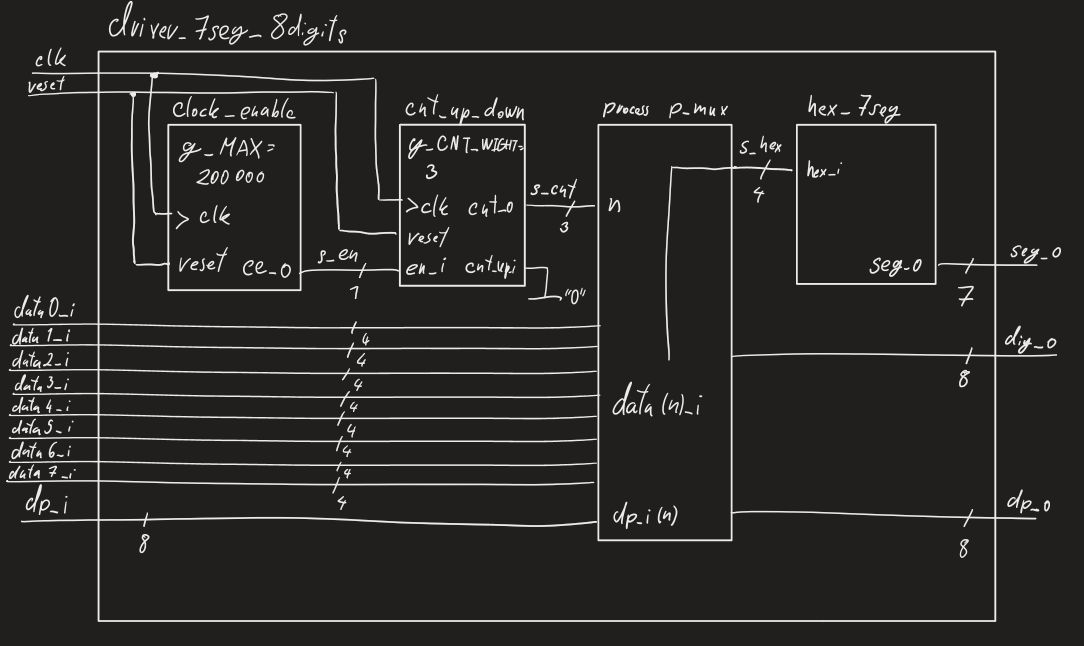 driver_7seg_8digits
clk
reset
clock_enable
g_MAX=
200 000
> clk
reset ce_o
s_en
1
cnt_up_down
g_CNT_WIGHT=
3
>clk cnt_o
reset
en_i cnt_up_i
"0"
s_cnt
3
process p_mux
n
data(n)_i
dp_i(n)
s_hex
4
hex_7seg
hex_i
seg_o
seg_o
7
dig_o
8
dp_o
8
data0_i
4
data1_i
4
data2_i
4
data3_i
4
data4_i
4
data5_i
4
data6_i
4
data7_i
4
dp_i
8